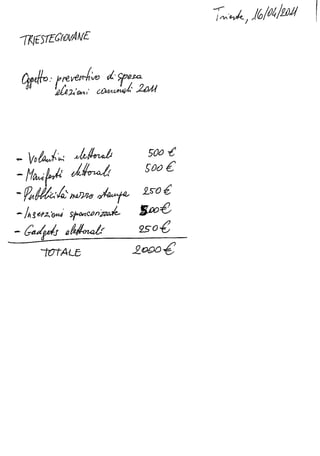 Trieste, 16/04/2011
TRIESTEGIOVANE
Oggetto: preventivo di spesa
elezioni comunali 2011
- Volantini elettorali 500 €
- Manifesti elettorali 500 €
- Pubblicità mezzo stampa 250 €
- Inserzioni sponsorizzate 500 €
- Gadgets elettorali 250 €
TOTALE 2000 €